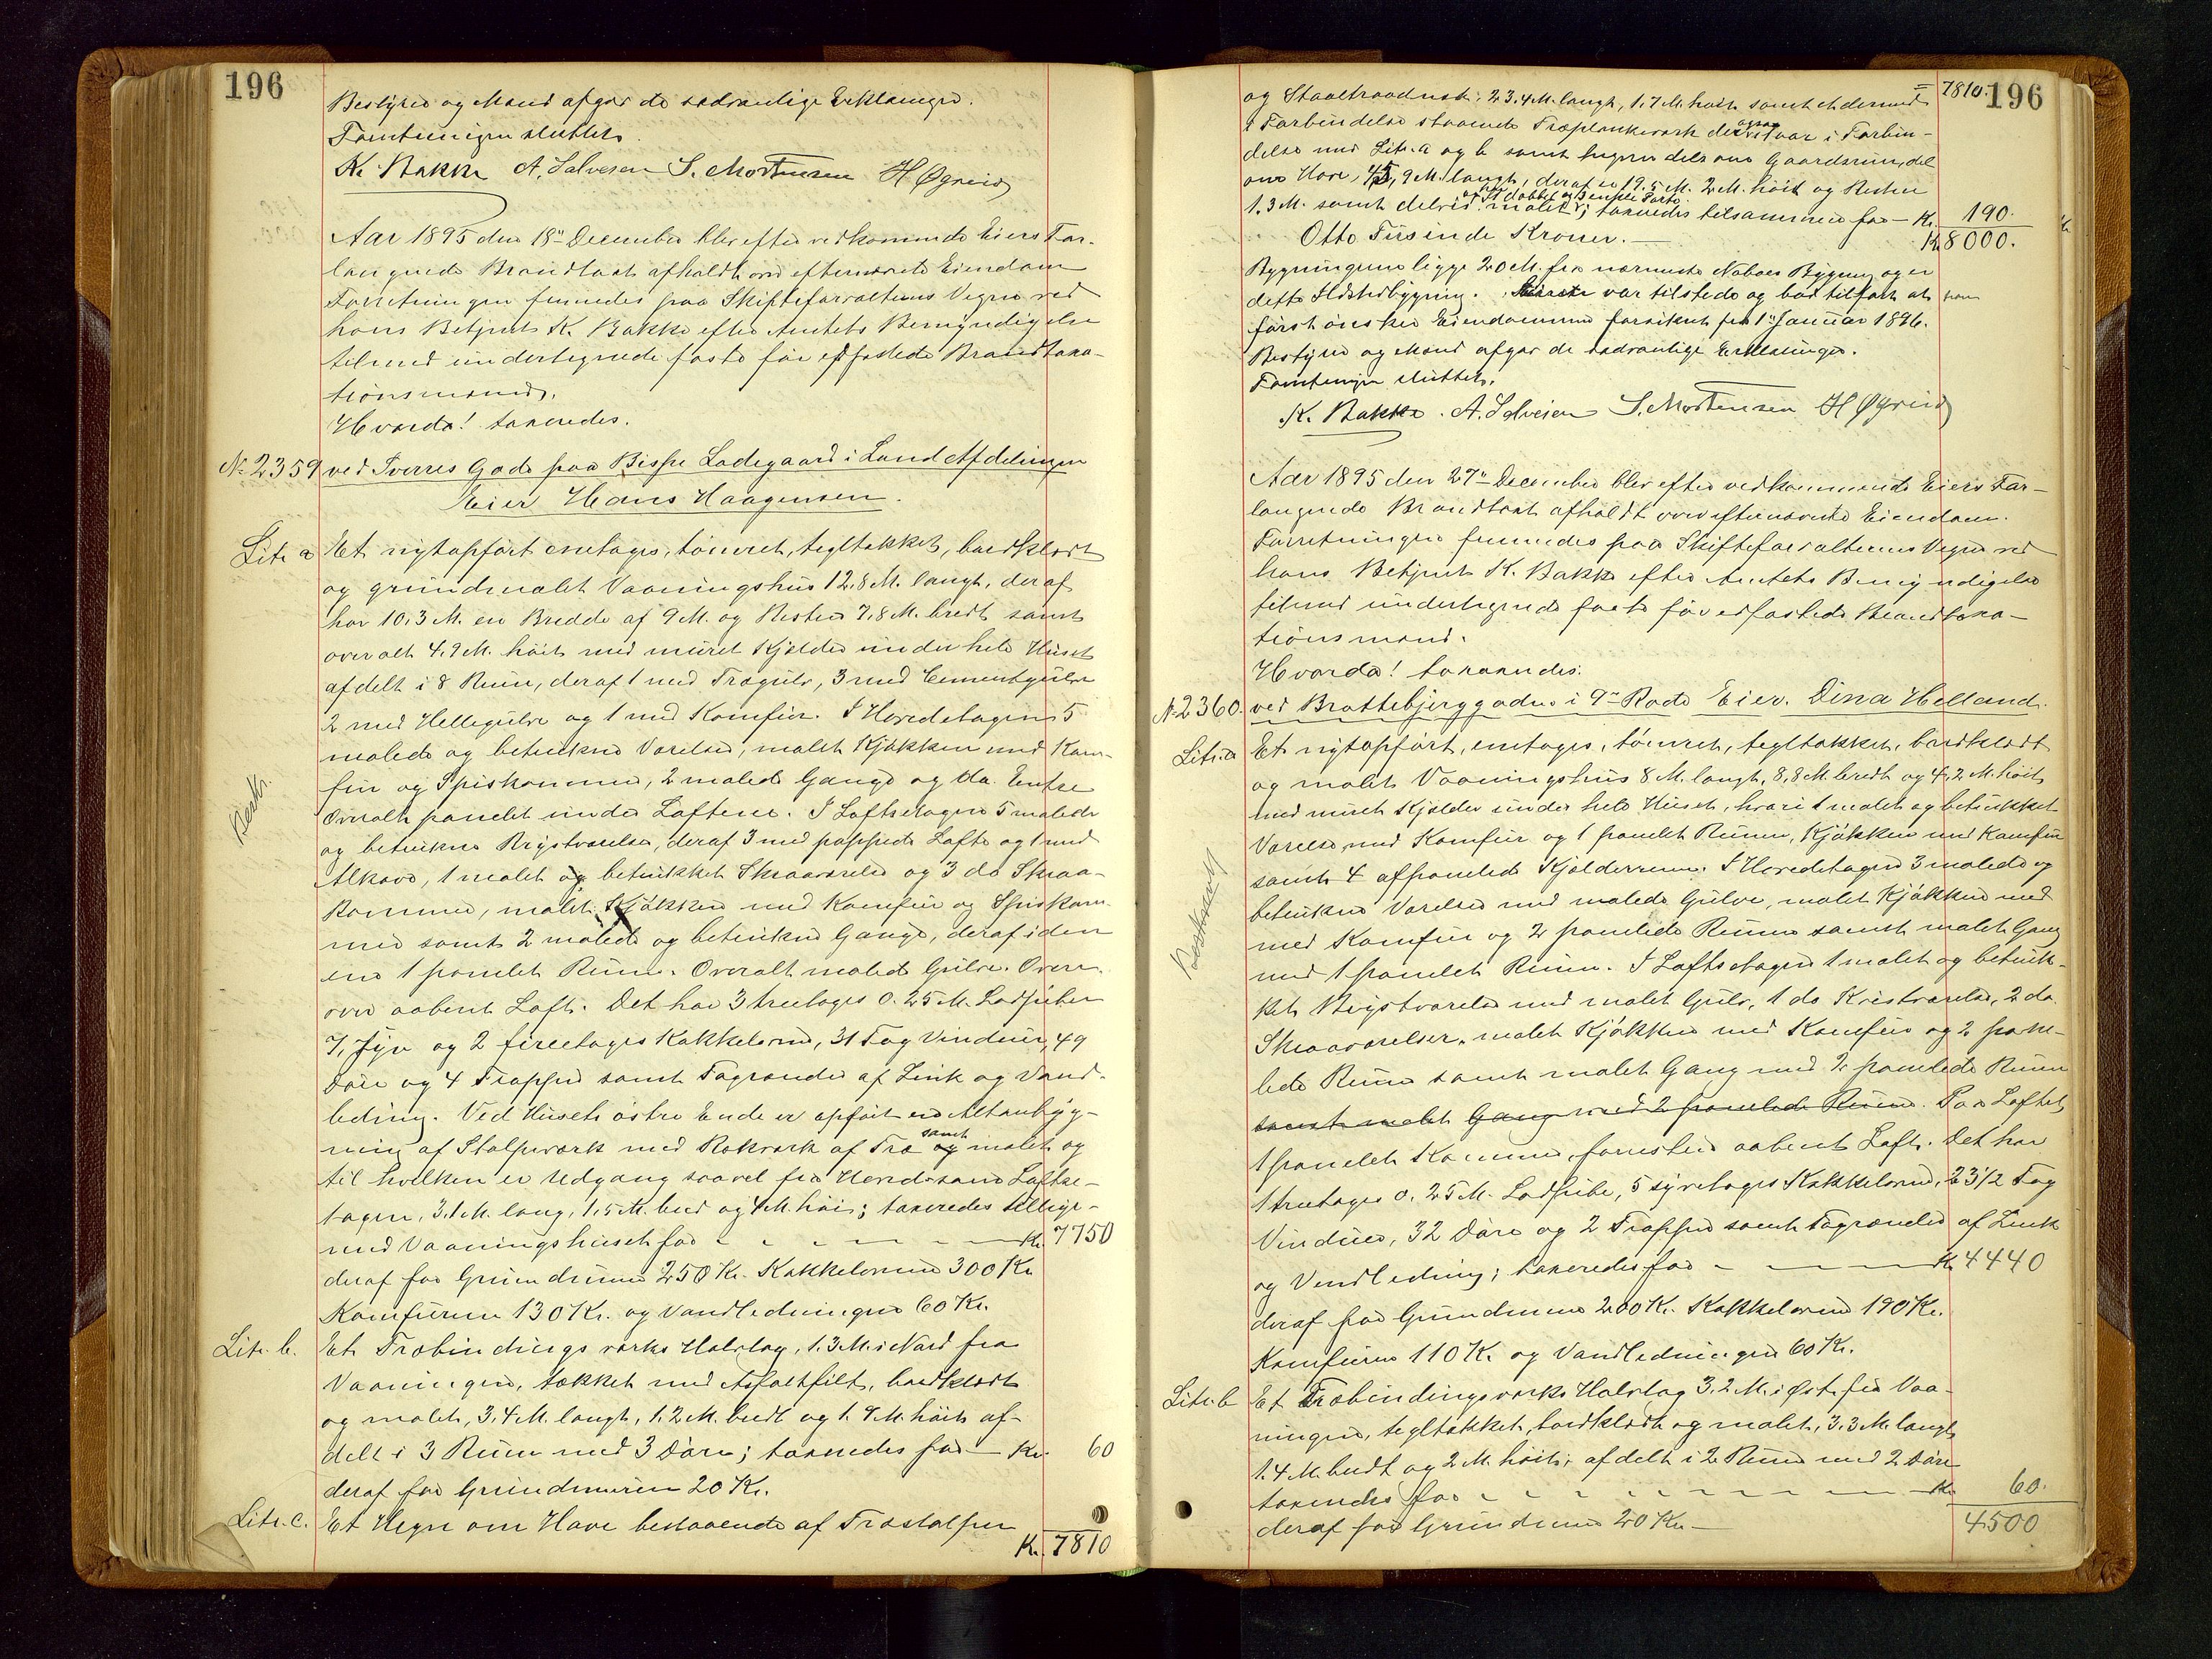 196
Bestyrer og Mænd afgav de sædvanlige Erklæringer.
Forretningen sluttet.
K. Bakke A. Salvesen S. Mortensen H Øgreid
Aar 1895 den 18de December blev efter vedkommende Eiers For-
langende Brandtaxt afholdt over efternævnte Eiendom
Forretningen fremmedes paa Skifteforvalterens Vegne ved
hans Betjent K. Bakke efter Amtets Bemyndigelse
tilmed undertegnede faste før edfæstede Brandtaxa-
tionsmænd.
Hvorda! taxeredes.
No 2359 ved Sverres Gade paa Bispe Ladegaard i Land Afdelingen
Eier Hans Haagensen.
Litr. a Et nytopført enetages, tømret, tegltækket, bordklædt
og grundmalet Vaaningshus 12,8 M. langt, deraf
har 10,3 M. en Bredde af 9 M. og Resten 7,8 M. bredt samt
overalt 4,9 M. høit med muret Kjælder under hele Huset
afdelt i 8 Rum, deraf 1 med Trægulv, 3 med Cementgulve
2 med Hellegulve og 1 med Komfur. I Hovedetagen 5
malede og betrukne Værelser, malet Kjøkken med Kom-
fur og Spiskammer, 2 malede Gange og da. Entre
Overalt panelet under Lofterne. I Loftsetagen 5 malede
og betrukne Brystværelser, deraf 3 med pappede Lofte og 1 med
Alkove, 1 malet og betrukket Skraaværelse og 3 do Skraa-
kammer, malet Kjøkken med Komfur og Spiskam-
mer samt 2 malede og betrukne Gange, deraf i den
ene 1 panelet Rum. Overalt malede Gulve. Oven-
over aabent Loft. Det har 3 treetages 0.25 M. Lodpiber
7, syv og 2 fireetages Kakkelovne, 31 Fag Vinduer, 49
Døre og 4 Trapper samt Tagrender af Zink og Vand-
ledning. Ved Husets østre Ende er opført en Altanbyg-
ning af Stolpeværk med Rækværk af Træ og samt malet og
til hvilken er Udgang saavel fra Hoved- som Loftse-
tagen, 3,1 M. lang, 1,5 M. bred og 4 M. høi; taxeredes tillige-
med Vaaningshuset for - - - - - - Kr. 7750
deraf for Grundmuren 250 Kr. Kakkelovnene 300 Kr
Komfurene 130 Kr. og Vandledningen 60 Kr.
Litr. b. Et Træbindingsværks Halvtag, 1.3 M. i Nord fra
Vaaningen, tækket med Asfaltfilt, bordklædt
og malet, 3,4 M. langt, 1,2 M. bredt og 1.9 M. høit af-
delt i 3 Rum med 3 Døre; taxeredes for - Kr. 60
deraf for Grundmuren 20 Kr.
Litr. c. Et Hegn om Have bestaaende af Træstolper
Kr. 7810
196
7810.
og Staaltraadnet, 23.4 M. langt, 1.7 M. høit samt et dermed
i Forbindelse staaende Træplankeværk der ogsaa staar i Forbin-
delse med Litr. a og b samt hegner dels om Gaardsrum, del
om Have, 45,9 M. langt, deraf er 19.5 M. 2 M. høit og Resten
1.3 M. samt delvis malet og har 1 dobbelt og 3 enkle Porte; taxeredes tilsammen for - Kr. 190.
Otto Tusinde Kroner. - Kr. 8000.
Bygningerne ligge 20 M. fra nærmeste Naboes Bygning og er
dette Ildstedbygning. Eieren var tilstede og bad tilført at han
først ønsker Eiendommen forsikret fra 1ste Januar 1896.
Bestyrer og Mænd afgav de sædvanlige Erklæringer.
Forretningen sluttet.
K. Bakke. A. Salvesen S. Mortensen H Øgreid
Aar 1895 den 27de December blev efter vedkommende Eiers For-
langende Brandtaxt afholdt over efternævnte Eiendom.
Forretningen fremmedes paa Skifteforvalterens Vegne ved
hans Betjent K. Bakke efter Amtets Bemyndigelse
tilmed undertegnede faste før edfæstede Brandtaxa-
tionsmænd.
Hvorda! taxeredes:
No 2360. ved Brattebjerggaden i 9de Rode Eier. Dina Helland.
Litr. a Et nytopført, enetages, tømret, tegltækket, bordklædt
og malet Vaaningshus 8 M. langt, 8,8 M. bredt og 4,2 M. høit
med muret Kjælder under hele Huset, hvori 1 malet og betrukket
Værelse med Komfur og 1 panelet Rum, Kjøkken med Komfur
samt 4 afpanelede Kjælderrum. I Hovedetagen 3 malede og
betrukne Værelser med malede Gulve, malet Kjøkken med
med Komfur og 2 panelede Rum samt malet Gang
med 1 panelet Rum. I Loftsetagen 1 malet og betruk-
ket Brystværelse med malet Gulv, 1 do Kvistværelse, 2 do
Skraaværelser, malet Kjøkken med Komfur og 2 pane-
lede Rum samt malet Gang med 2 panelede Rum
samt malet Gang med 2 panelede Rum. Paa Loftet
1 panelet Kammer, forresten aabent Loft. Det har
1 treetages 0.25 M. Lodpibe, 5 syvetages Kakkelovne, 23 1/2 Fag
Vinduer, 32 Døre og 2 Trapper samt Tagrender af Zink
og Vandledning; taxeredes for - - - - - Kr 4440
deraf for Grundmuren 200 Kr. Kakkelovnene 190 Kr.
Komfurene 110 Kr. og Vandledningen 60 Kr.
Litr. b Et Træbindingsværks Halvtag 3,2 M. i Øst fra Vaa-
ningen, tegltækket, bordklædt og malet, 3,3 M. langt
1.4 M. bredt og 2 M. høit; afdelt i 2 Rum med 2 Døre
taxeredes for - - - - - - - - Kr. 60.
deraf for Grundmuren 20 Kr - 4500